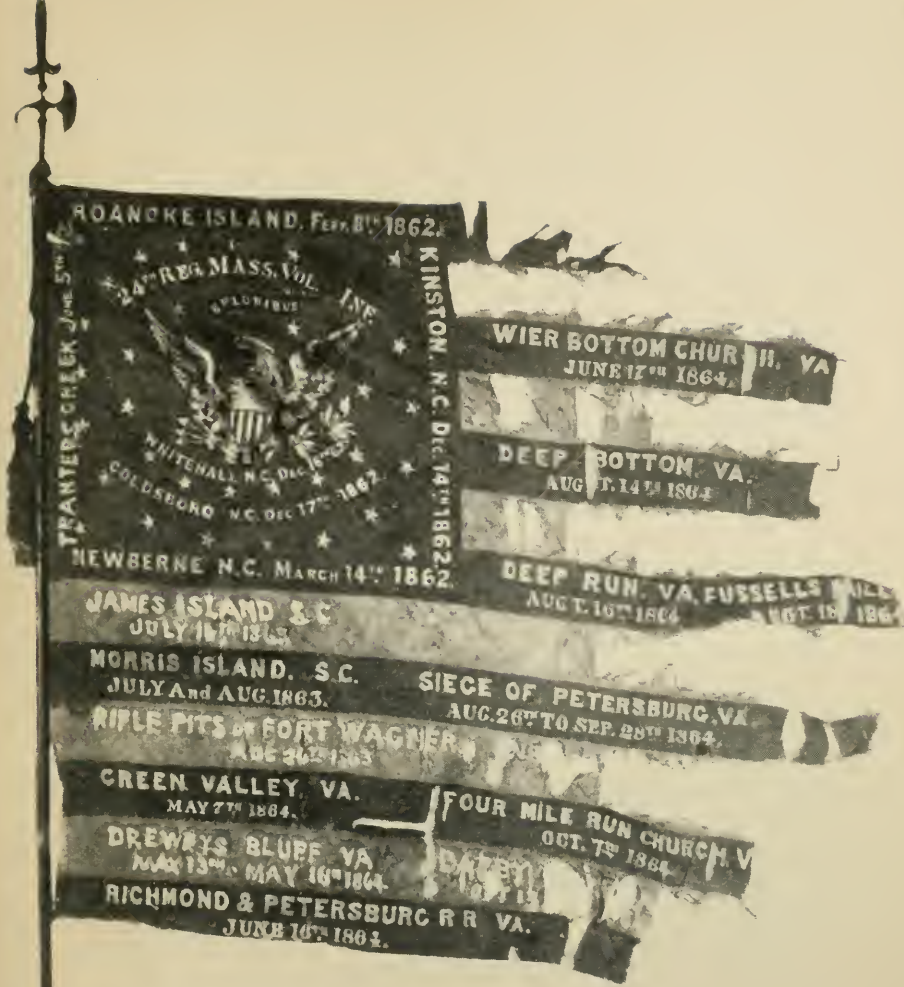 ROANOKE ISLAND, FEB. 8TH 1862.
TRANTERS CREEK JUNE 5TH
KINSTON, N.C. DEC. 14TH 1862.
24TH REG. MASS. VOL. INF.
E PLURIBUS
WHITEHALL N.C. DEC.
GOLDSBORO N.C. DEC 17TH 1862.
NEWBERNE N.C. MARCH 14TH 1862.
WIER BOTTOM CHUR H, VA
JUNE 17TH 1864.
DEEP BOTTOM, VA.
AUGT. 14TH 1864
DEEP RUN, VA, FUSSELLS MILL
AUGT. 16TH 1864 18 186
JAMES ISLAND S.C
JULY 16TH 1863
MORRIS ISLAND. S.C.
JULY And AUG. 1863.
SIEGE OF PETERSBURG, VA
AUG. 26TH TO SEP. 28TH 1864.
RIFLE PITS OF FORT WAGNER
AUG 26TH 1863
GREEN VALLEY, VA.
MAY 7TH 1864.
FOUR MILE RUN CHURCH V
OCT. 7TH 1864
DREWRYS BLUFF VA
MAY 13TH. MAY 16TH 1864.
RICHMOND & PETERSBURG R R VA.
JUNE 16TH 1864.